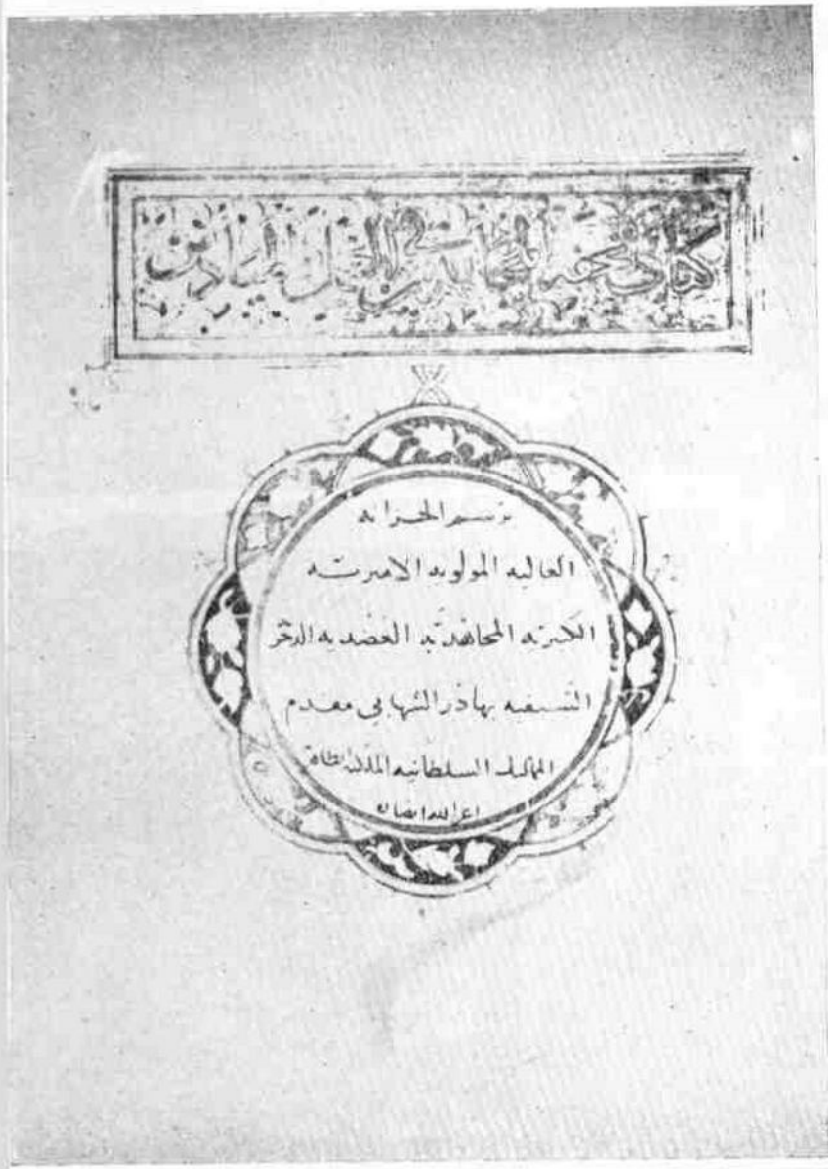 كتاب تحفة المجاهدين في العمل بالميادين
برسم الخزانه
العاليه المولويه الاميريه
الكبيريه المجاهديه العضديه الذخريه
السيفيه بهادر الشهابي مقدم
المماليك السلطانيه الملكيه
اعز الله انصاره